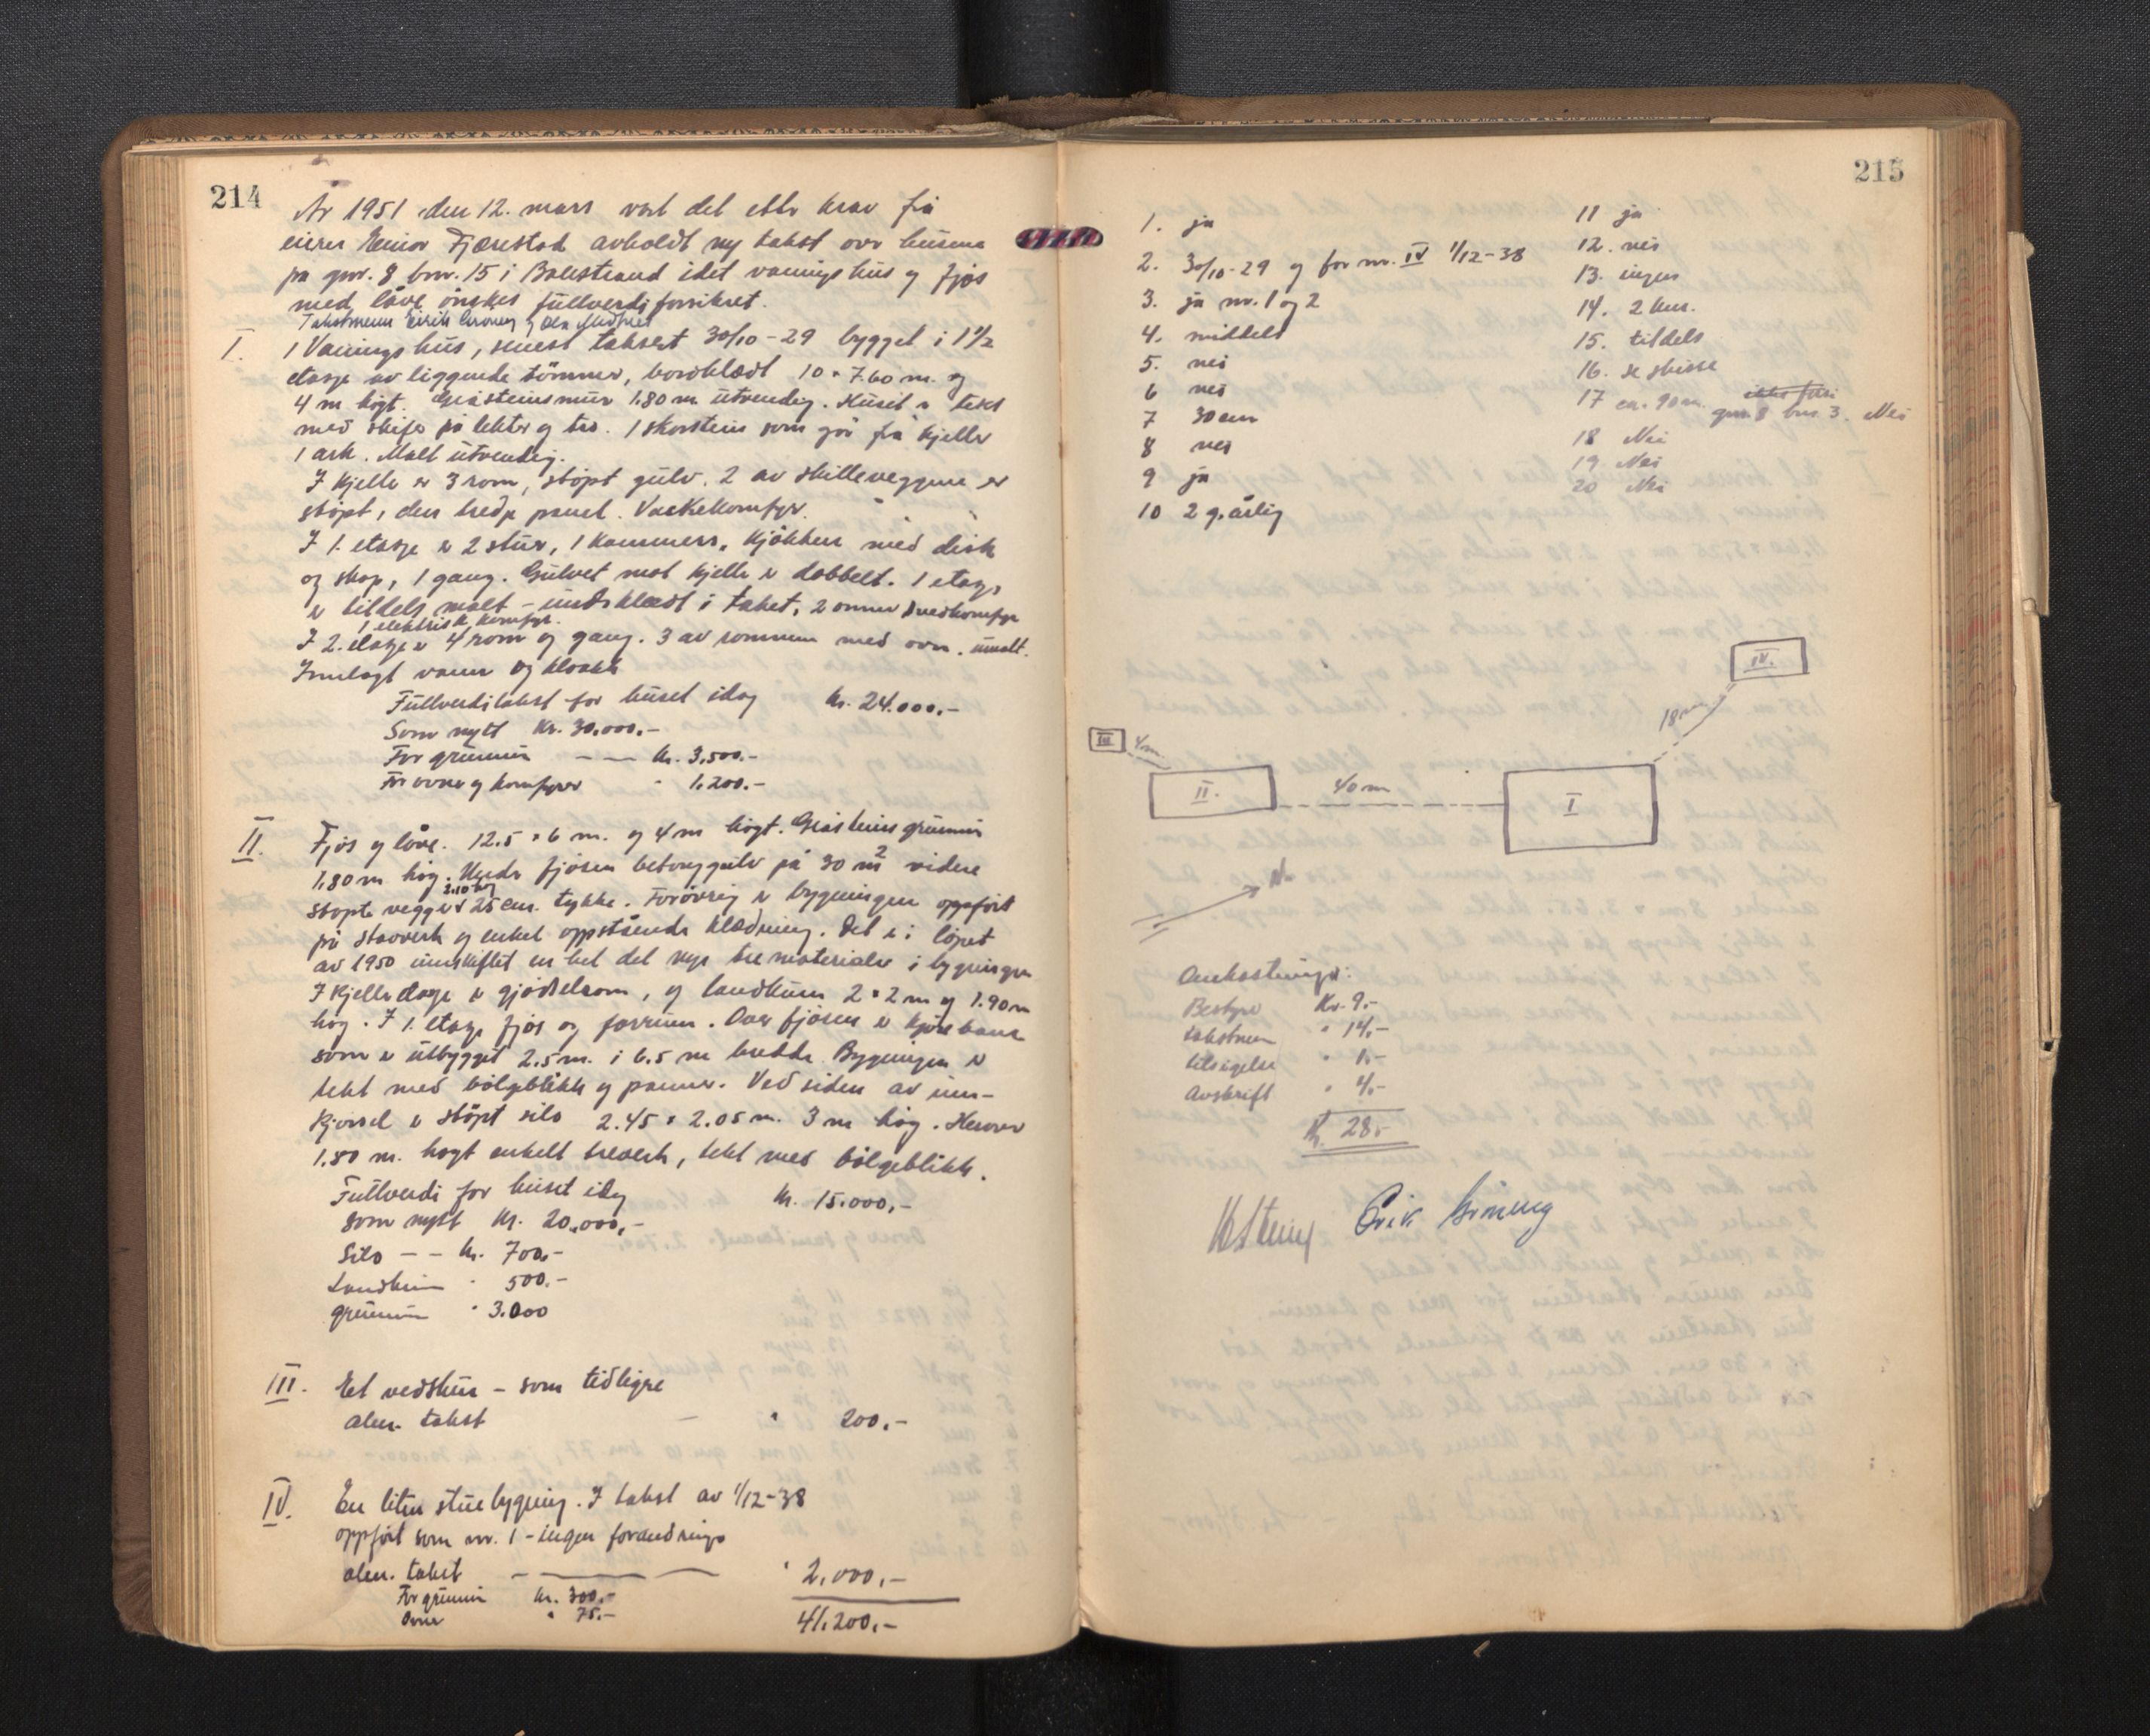 214
År 1951 den 12. mars vart det etter krav fra
eieren Einar Fjærestad avholdt ny takst over husene
på gnr. 8 bnr. 15 i Balestrand idet vaningshus og fjøs
med løve ønskes fullverdiforsikret.
Takstmenn Eirik Grøneng og Ola
I. 1 Vaningshus, senest taksert 30/10-29 bygget i 1 1/2
etasje av liggende tømmer, bordklædt 10 × 7.60 m. og
4 m høgt. Gråsteinsmur 1.80 m utvendig. Huset er tekt
med skifer på lekter og tro. 1 skorstein som går fra kjeller
1 ark. Malt utvendig.
I kjeller er 3 rom, støpt gulv. 2 av skilleveggene er
støpt, den tredje panel. Vaskekomfyr.
I 1. etasje er 2 stuer, 1 kammers, kjøkken med disk
og skap, 1 gang. Gulvet mot kjeller er dobbelt. 1 etasje
er tildels malt - underklædt i taket, 2 ovner 1 vedkomfyr
1 elektrisk komfyr.
I 2. etasje er 4 rom og gang. 3 av rommene med ovn. umalt.
Innlagt vann og kloakk
Fullverditakst for huset idag kr. 24.000,-
Som nytt kr. 30,000.-
For grunnmur - — kr. 3,500.-
For ovner og komfyrer " 1.200.-
II. Fjøs og løve. 12.5 × 6 m. og 4 m høgt. Gråsteins grunnmur
1.80 m høg. Under fjøsen betonggulv på 30 m² videre
3.10 høg
støpte vegger 25 cm. tykke. Forøvrig er bygningen oppført
på stavverk og enkel oppstående klædning. Det er i løpet
av 1950 innskiftet en hel del nye trematerialer i bygningen
I kjelleretasje er gjødselrom, og landkum 2 × 2 m og 1.90 m
høg. I 1. etasje fjøs og forrum. Over fjøsen er kjørebane
som er utbygget 2.5 m. i 6.5 m bredde. Bygningen er
tekt med bølgeblikk og panner. Ved siden av inn-
kjørsel er støpt silo 2.45 × 2.05 m. 3 m høg. Herover
1.80 m. høgt enkelt treverk, tekt med bølgeblikk.
Fullverdi for huset idag kr. 15.000,-
som nytt kr. 20,000,-
Silo - - kr. 700,-
Landkum " 500.-
grunnmur " 3.000
III. Et vedskur - som tidligere
alm. takst — " 200,-
IV. En liten stuebygning. I takst av 1/12-38
oppført som nr. 1 - ingen forandringer
alm. takst — " 2,000,-
For grunnmur kr. 300,-
Ovner " 75.-
41.200,-
215
1. ja
2. 30/10-29 og for nr. IV 1/12-38
3. ja nr. 1 og 2
4. middels
5. nei
6 nei
7 30 cm
8 nei
9 ja
10 2 g. årlig
11 ja
12. nei
13. ingen
14. 2 hus.
15. tildels
16. se skisse
17 ca. 90 m. gnr. 8 bnr. 3. Nei
18 Nei
19 Nei
20 Nei
IV.
18 m
III 4 m
II. 40 m I
N
Omkostninger:
Bestyrer Kr. 9.-
takstmenn " 14,-
tilsigelse " 1.-
Avskrift " 4,-
Kr. 28.-
Eirik Grøneng